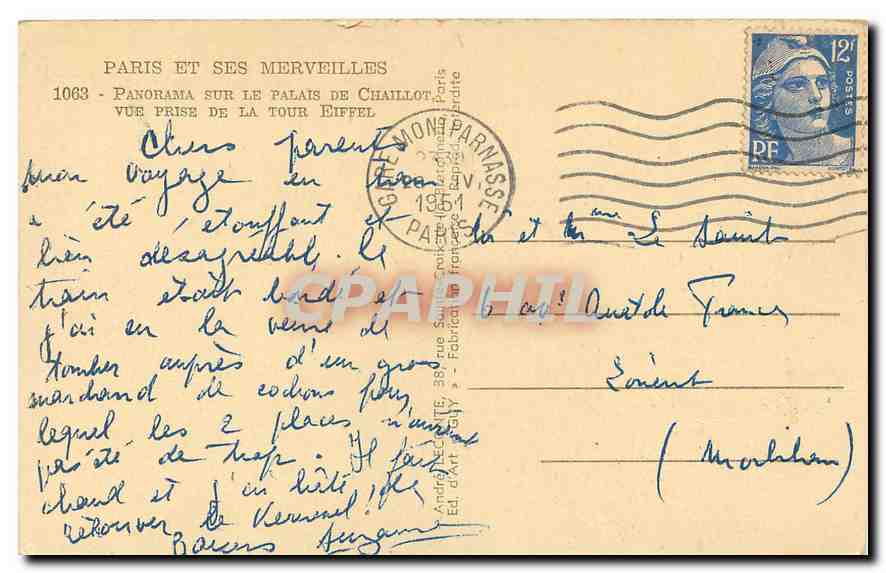 PARIS ET SES MERVEILLES
1063 - PANORAMA SUR LE PALAIS DE CHAILLOT,
VUE PRISE DE LA TOUR EIFFEL
Chers parents
mon voyage en train
a été étouffant et
bien désagréable. le
train était bondé et
j'ai eu la veine de
tomber auprès d'un gros
marchand de cochons pour
lequel les 2 places n'auraient
pas été de trop. Il fait
chaud et j'ai hâte de
retrouver le
Baisers Suzanne
André LECONTE, 38, rue Sainte-Croix-de-la-Bretonnerie, Paris
Ed. d'Art "GUY" - Fabrication française - Reprod. interdite
GARE MONTPARNASSE
1951
PARIS
12F
POSTES
RF
Mr et Mme Le Saint
6 av. Anatole France
Lorient
(Morbihan)
CPAPHIL